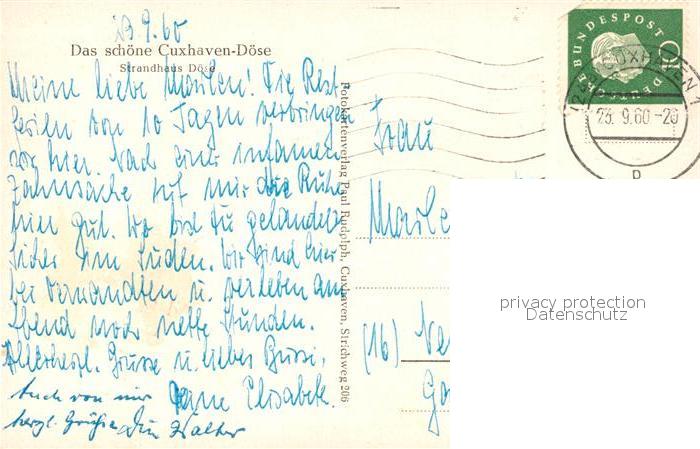 23.9.60
Das schöne Cuxhaven-Döse
Strandhaus Döse
Meine liebe Marlen! Die Rest-
ferien von 10 Tagen verbringen
wir hier. Nach einer infamen
Zahnsache tut mir die Ruhe
hier gut. Wo bist Du gelandet?
Sicher im Süden. Wir sind hier
bei Verwandten u. verleben am
Abend noch nette Stunden.
Allerherzl. Grüsse u. liebes Bussi,
Deine Elisabeth.
Auch von mir
herzl. Grüße Dein Walter
Fotokartenverlag Paul Rudolph, Cuxhaven, Strichweg 206
DEUTSCHE BUNDESPOST
10
CUXHAVEN
23.9.60-20
Frau
Marle
(16) Ne
privacy protection
Datenschutz